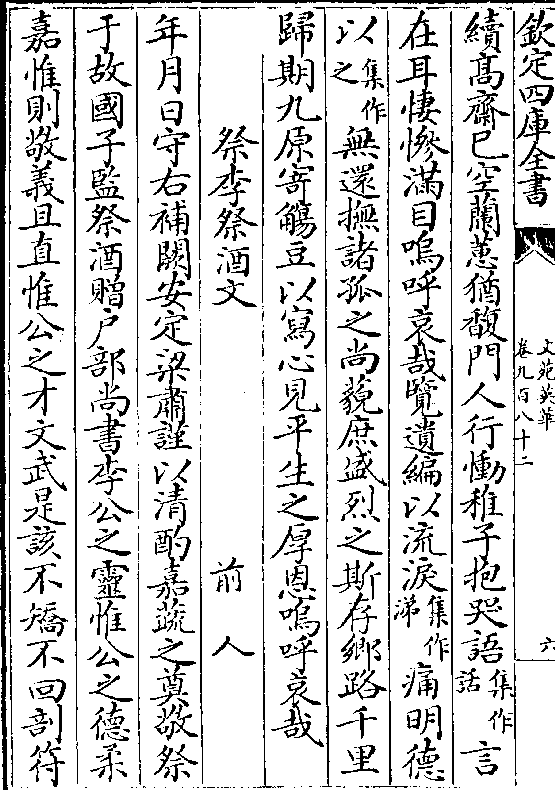 欽定四庫全書
文苑英華
卷九百八十二
六
續髙齋已空蘭蕙猶馥門人行慟稚子抱哭語集作話言
在耳悽慘滿目嗚呼哀哉覽遺編以流淚集作涕痛明德
以集作之無還撫諸孤之尚藐庶盛烈之斯存鄉路千里
歸期九原寄觴豆以寫心見平生之厚恩嗚呼哀哉
祭李祭酒文 前人
年月日守右補闕安定梁肅謹以清酌嘉蔬之奠敬祭
于故國子監祭酒贈户部尚書李公之靈惟公之德柔
嘉惟則敬義且直惟公之才文武是該不矯不回剖符